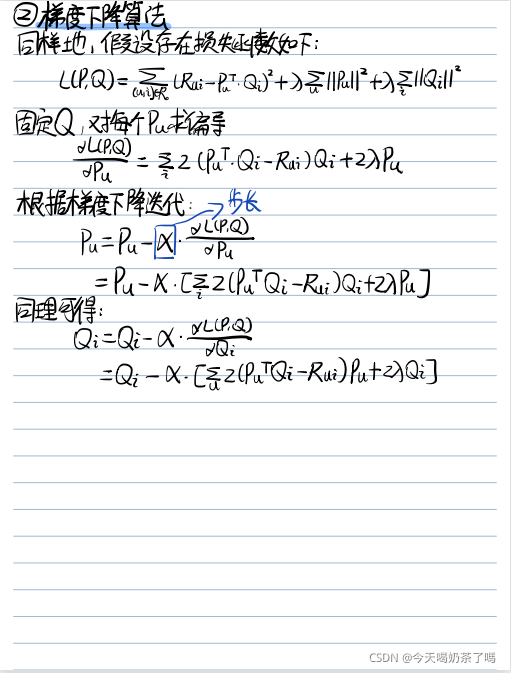 ②梯度下降算法
同样地,假设存在损失函数如下:
L(P,Q)=∑(u,i)∈R (Rui-Pu^T·Qi)²+λ∑u||Pu||²+λ∑i||Qi||²
固定Q,对每个Pu求偏导
∂L(P,Q)/∂Pu=∑i 2(Pu^T·Qi-Rui)Qi+2λPu
根据梯度下降迭代: 步长
Pu=Pu-α·∂L(P,Q)/∂Pu
=Pu-α·[∑i 2(Pu^TQi-Rui)Qi+2λPu]
同理可得:
Qi=Qi-α·∂L(P,Q)/∂Qi
=Qi-α·[∑u 2(Pu^TQi-Rui)Pu+2λQi]
CSDN @今天喝奶茶了嗎